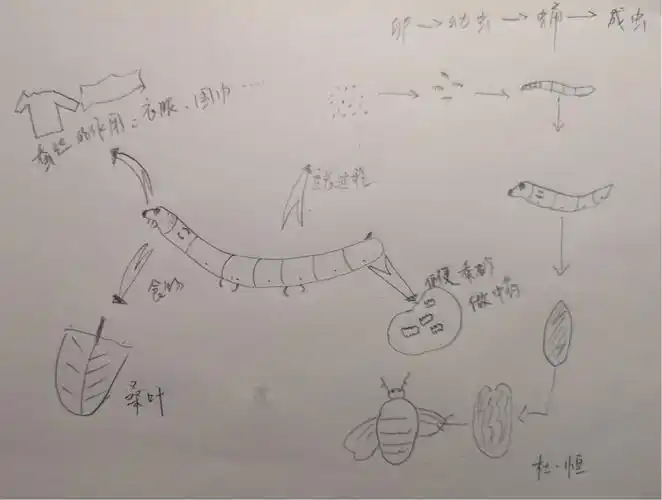 卵→幼虫→蛹→成虫
蚕丝的作用：衣服、围巾……
生长过程
食物
粪便 蚕砂
做中药
桑叶
杜一恒